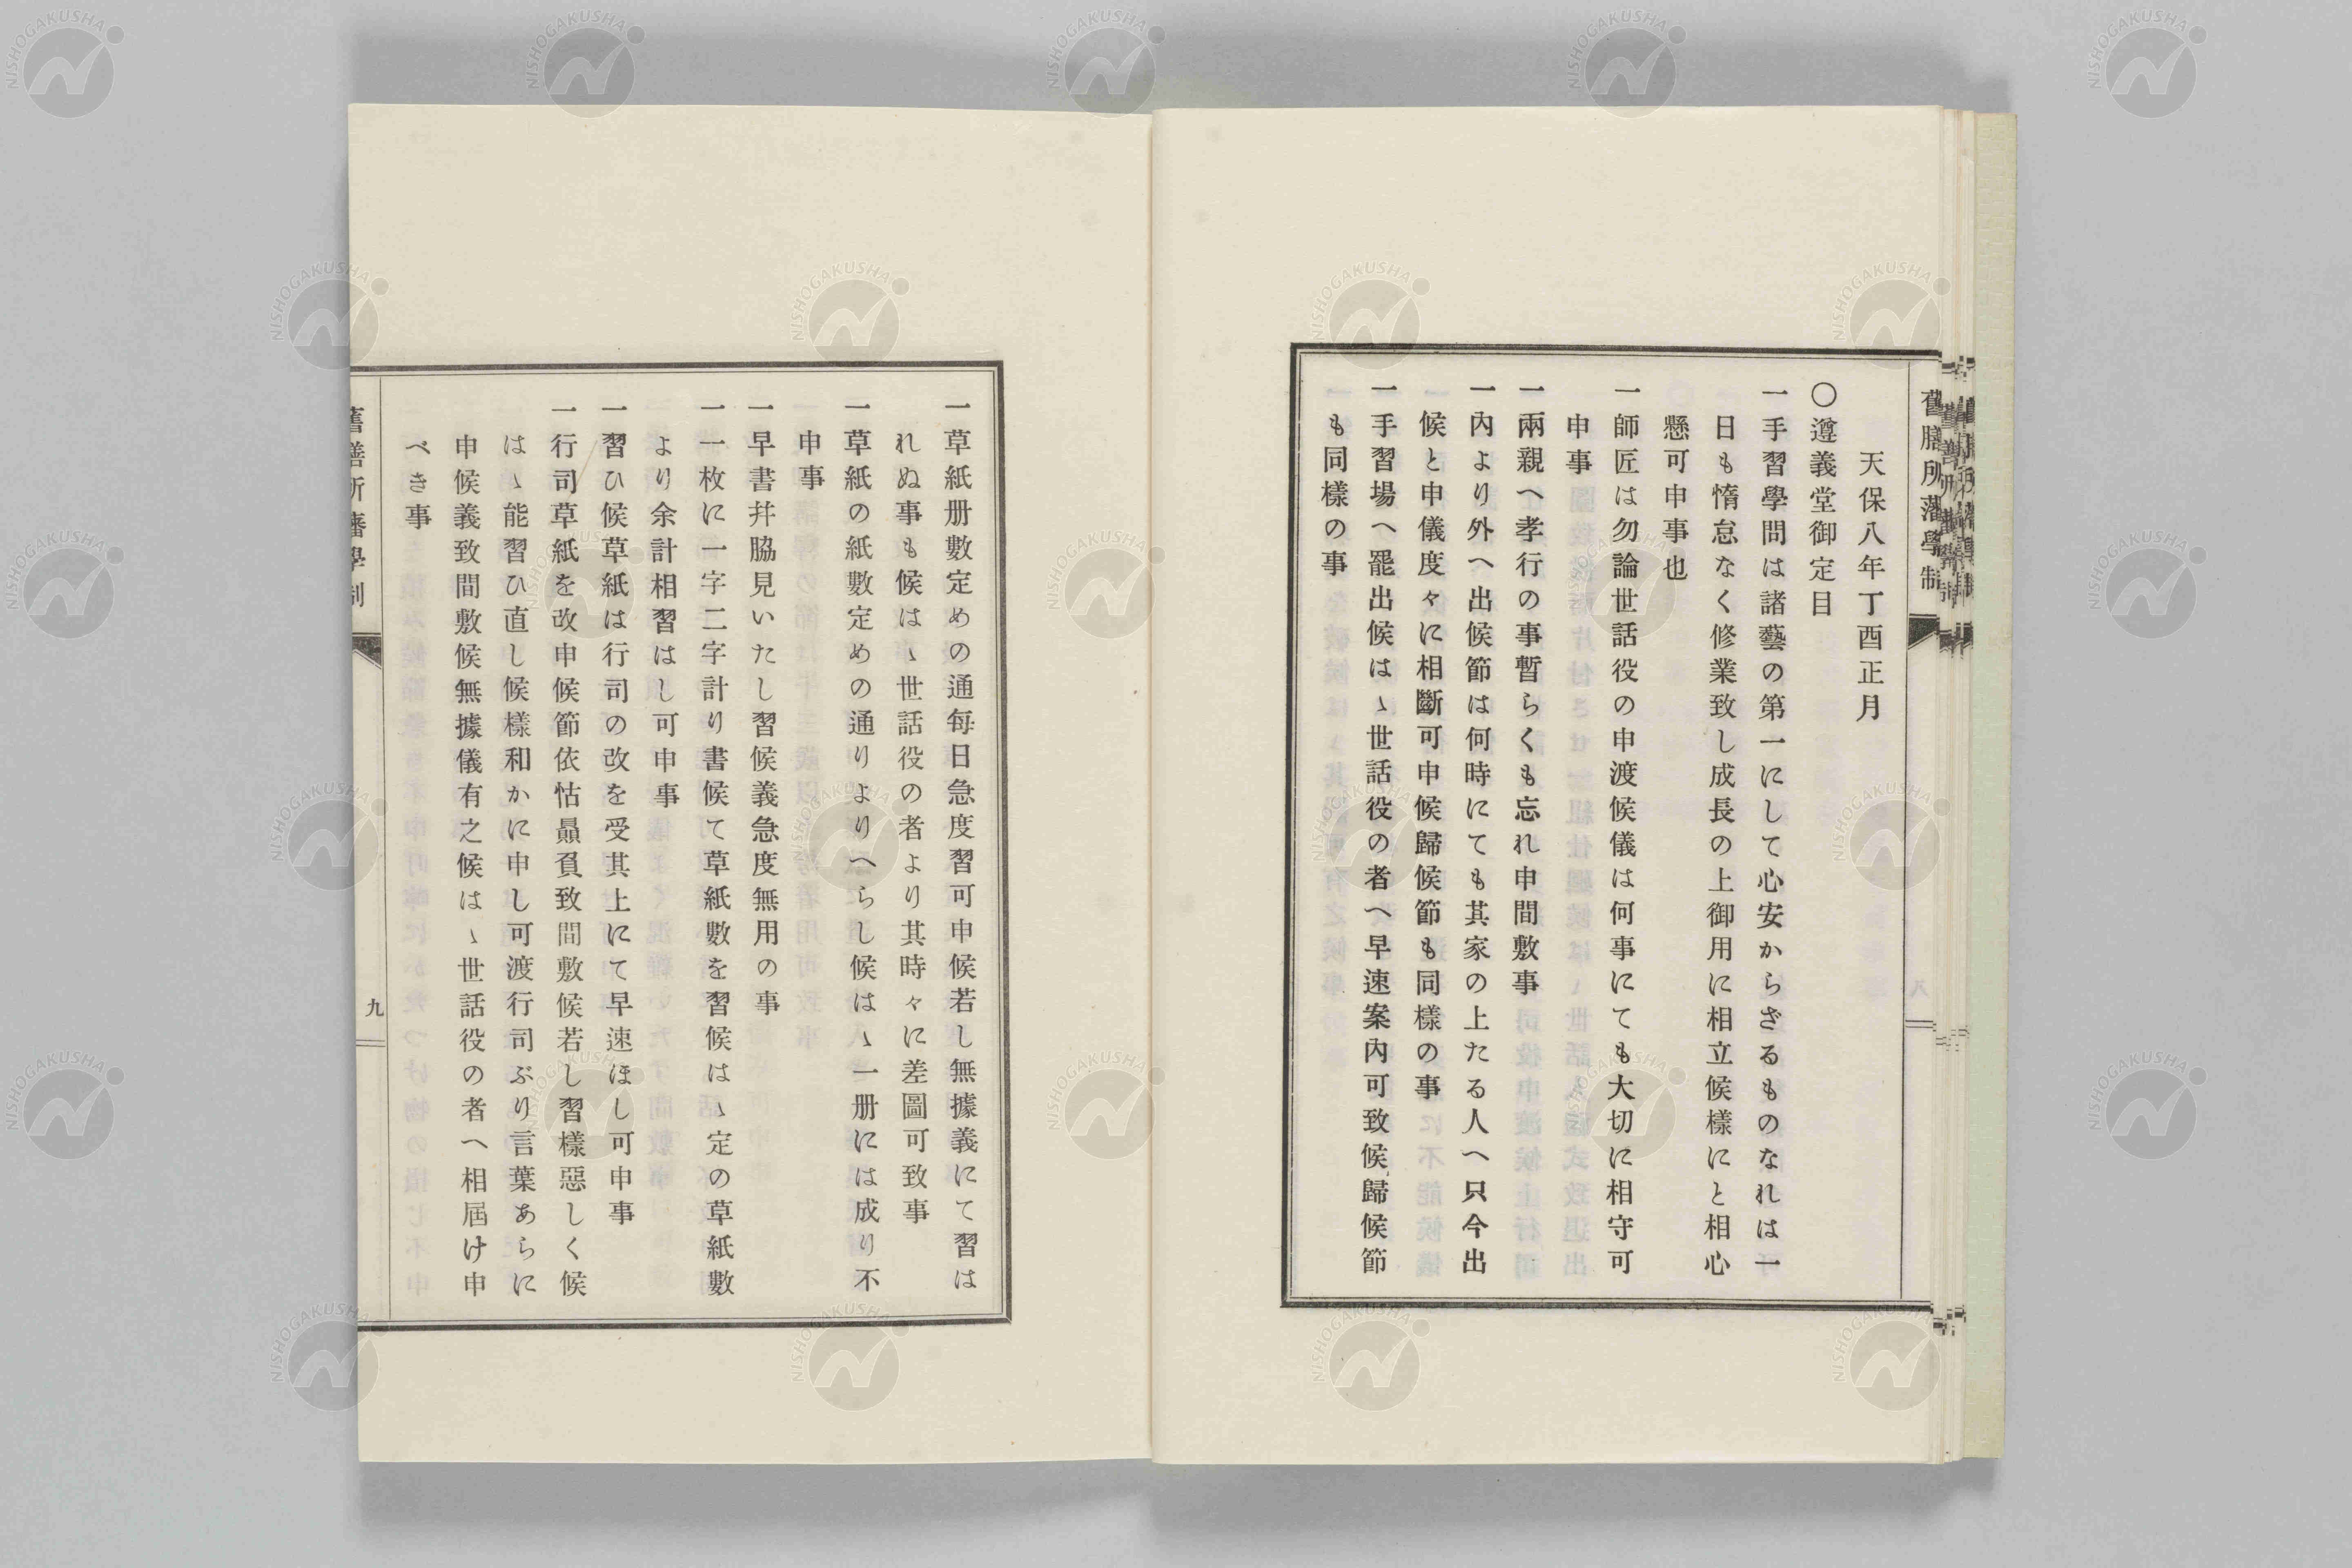 舊膳所藩學制
天保八年丁酉正月
〇遵義堂御定目
一手習學問は諸藝の第一にして心安からざるものなれは一
日も惰怠なく修業致し成長の上御用に相立候樣にと相心
懸可申事也
一師匠は勿論世話役の申渡候儀は何事にても大切に相守可
申事
一兩親へ孝行の事暫らくも忘れ申間敷事
一內より外へ出候節は何時にても其家の上たる人へ只今出
候と申儀度々に相斷可申候歸候節も同樣の事
一手習場へ罷出候はゝ世話役の者へ早速案內可致候歸候節
も同樣の事
一草紙册數定めの通每日急度習可申候若し無據義にて習は
れぬ事も候はゝ世話役の者より其時々に差圖可致事
一草紙の紙數定めの通りよりへらし候はゝ一册には成り不
申事
一早書幷脇見いたし習候義急度無用の事
一一枚に一字二字計り書候て草紙數を習候はゝ定の草紙數
より余計相習はし可申事
一習ひ候草紙は行司の改を受其上にて早速ほし可申事
一行司草紙を改申候節依怙贔負致間敷候若し習樣惡しく候
はゝ能習ひ直し候樣和かに申し可渡行司ぶり言葉あらに
申候義致間敷候無據儀有之候はゝ世話役の者へ相屆け申
べき事
舊膳所藩學制
九
NISHOGAKUSHA